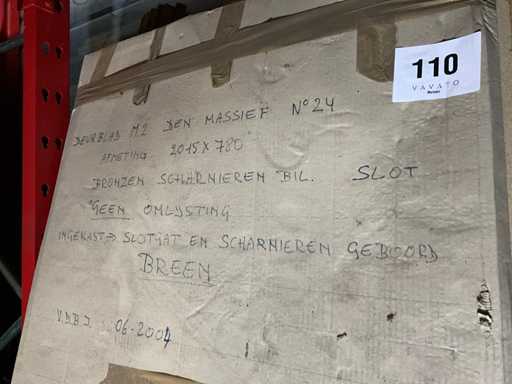 110
VAVATO
DEURBLAD M2 DEN MASSIEF N° 24
AFMETING 2015 X 780
BRONZEN SCHARNIEREN BIL. SLOT
GEEN OMLIJSTING
INGEKAST → SLOTGAT EN SCHARNIEREN GEBOORD
BREEN
V.D.B.J. 06-2004